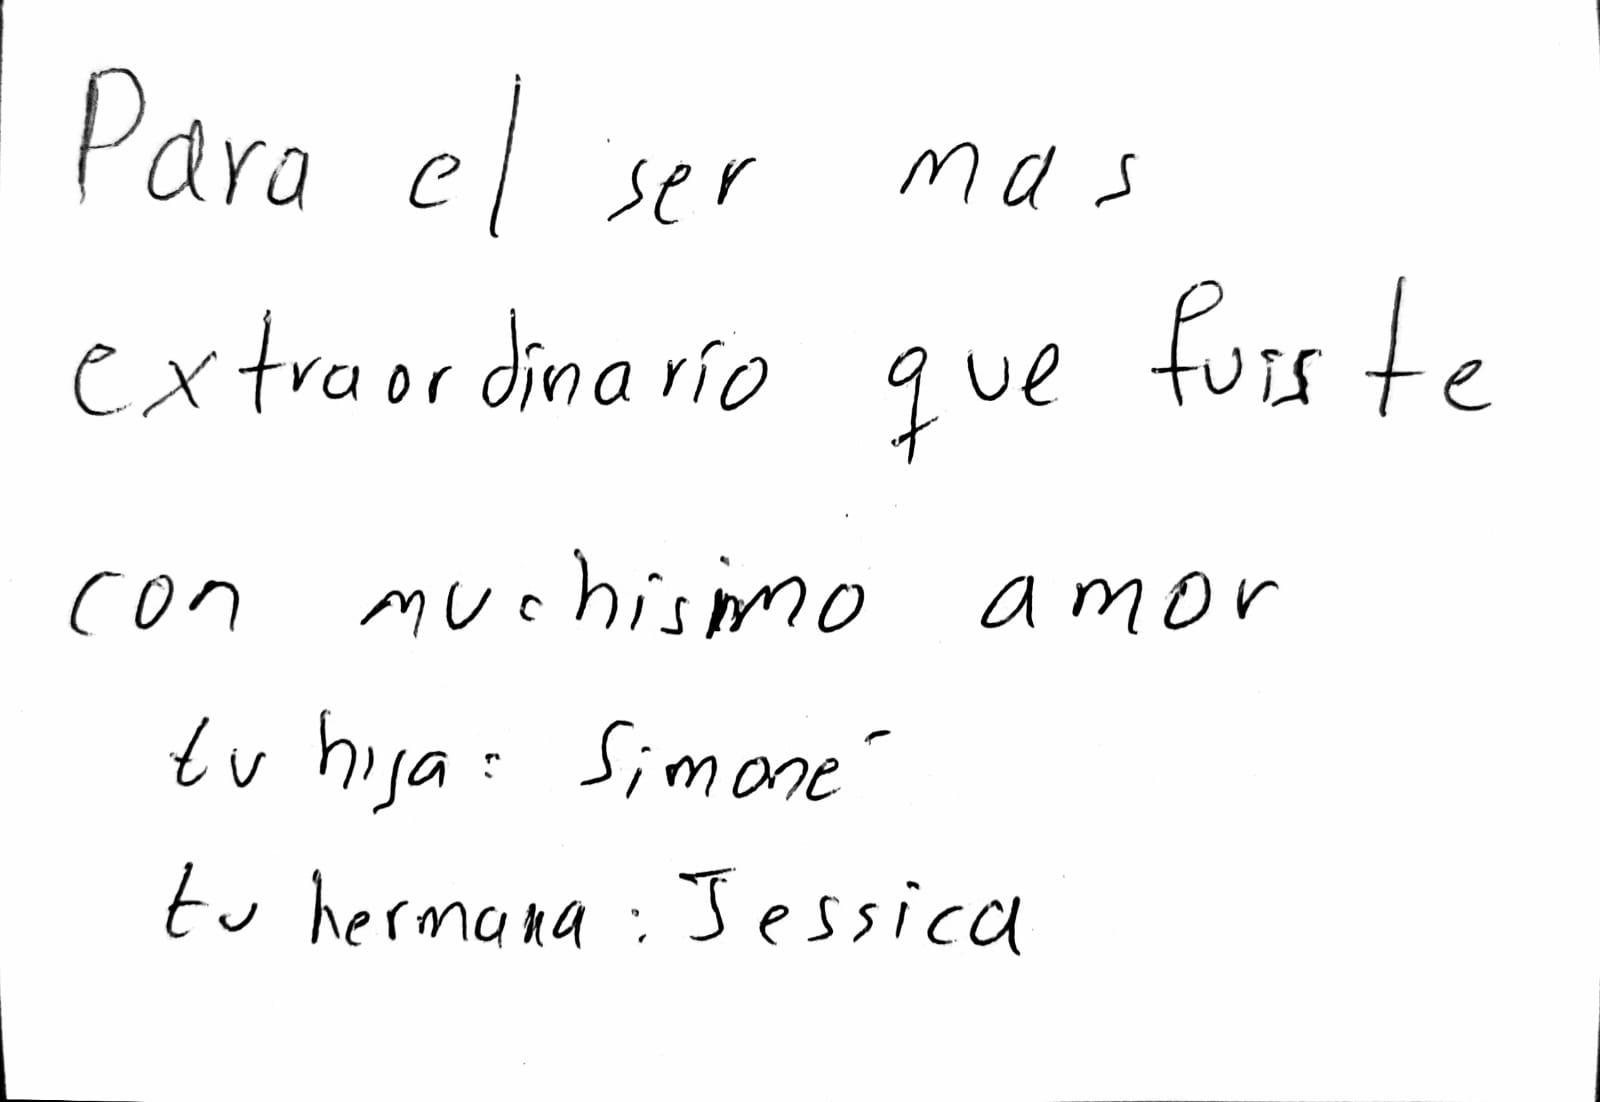 Para el ser mas
extraordinario que fuiste
con muchisimo amor
tu hija: Simoné
tu hermana: Jessica